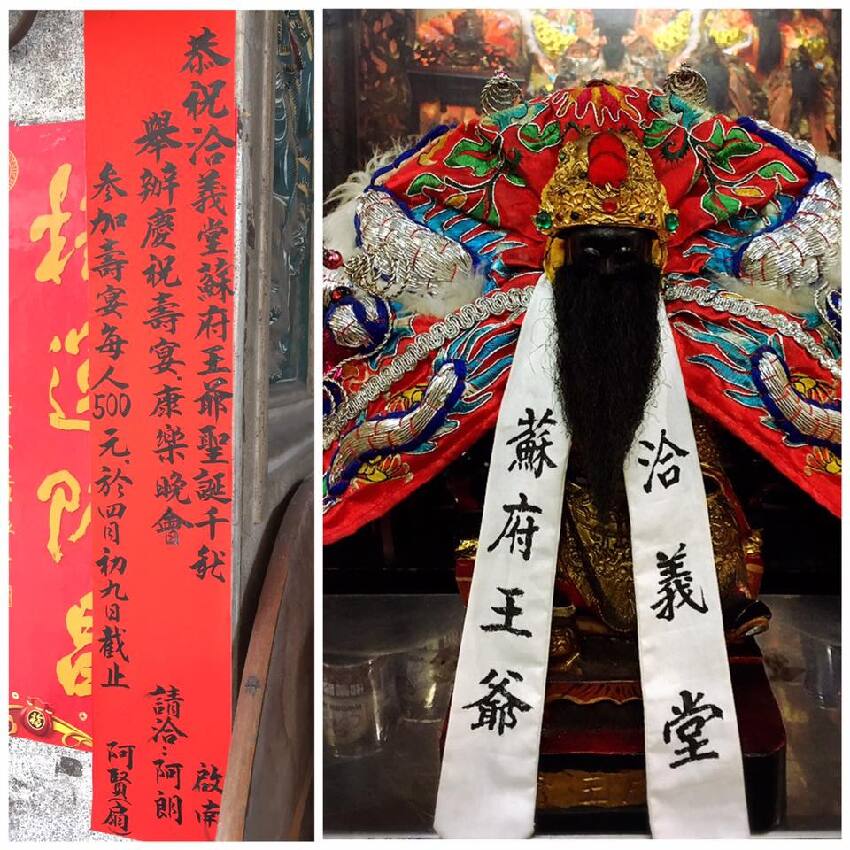 恭祝洽義堂蘇府王爺聖誕千秋
舉辦慶祝壽宴、康樂晚會
參加壽宴每人500元、於四月初九日截止
啟南
請洽:阿朗
阿賢(扇)
洽義堂
蘇府王爺